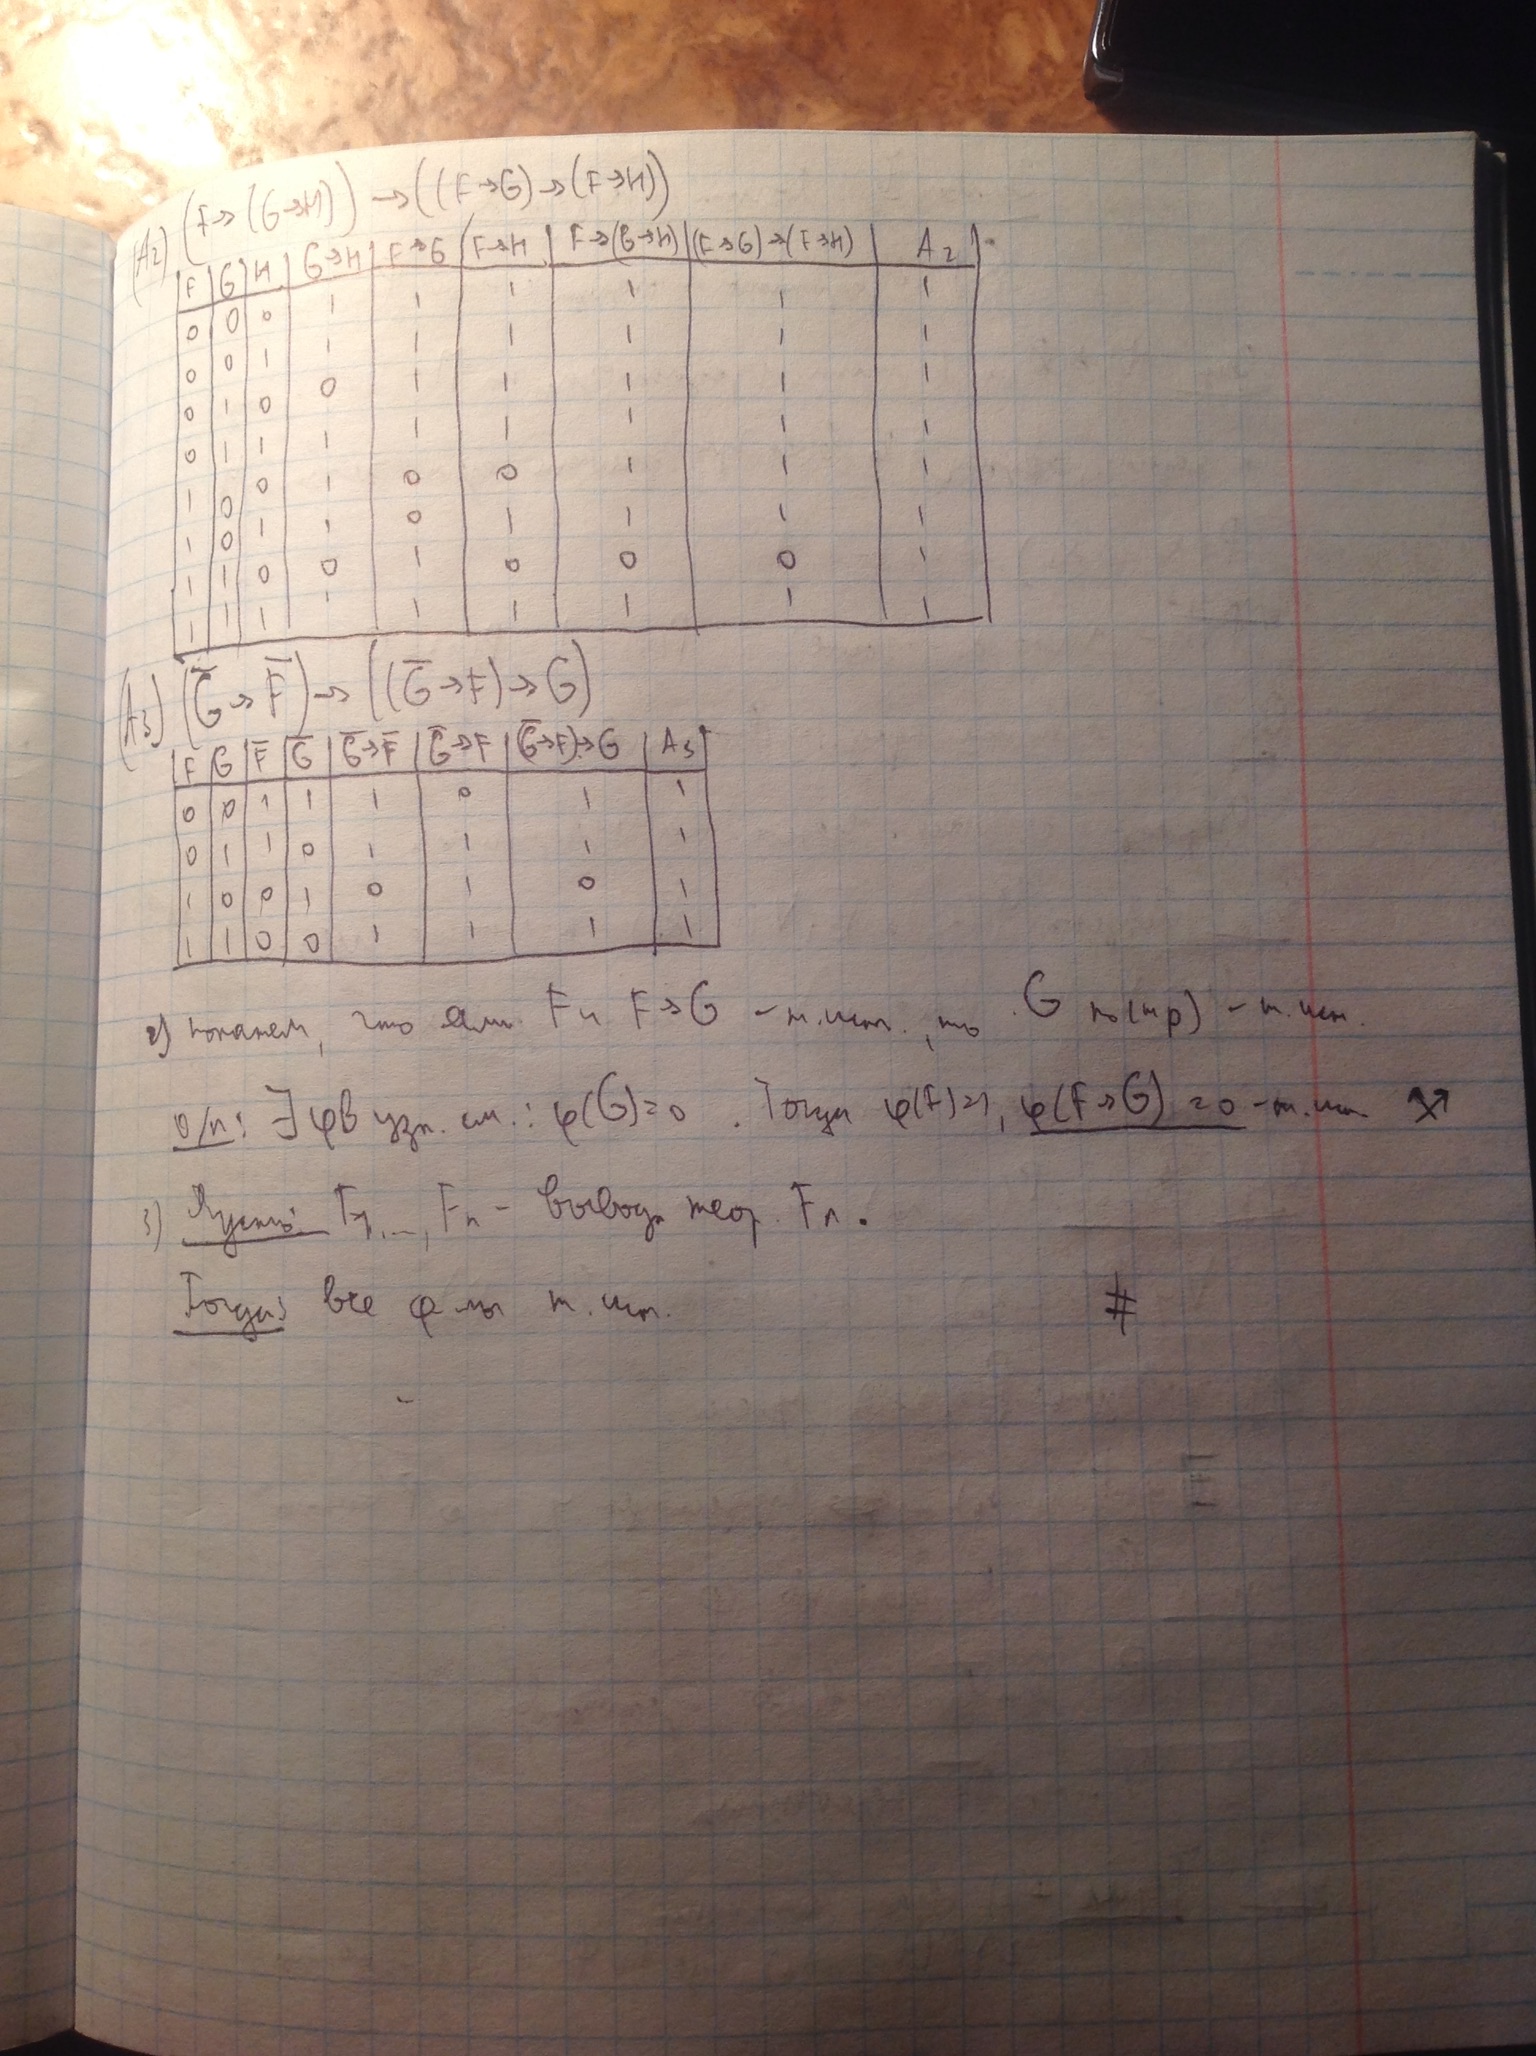 (A2) (F→(G→H))→((F→G)→(F→H))
F G H G→H F→G F→H F→(G→H) (F→G)→(F→H) A2
0 0 0 1 1 1 1 1 1
0 0 1 1 1 1 1 1 1
0 1 0 0 1 1 1 1 1
0 1 1 1 1 1 1 1 1
1 0 0 1 0 0 1 1 1
1 0 1 1 0 1 1 1 1
1 1 0 0 1 0 0 0 1
1 1 1 1 1 1 1 1 1
(A3) (G̅→F̅)→((G̅→F)→G)
F G F̅ G̅ G̅→F̅ G̅→F (G̅→F)→G A3
0 0 1 1 1 0 1 1
0 1 1 0 1 1 1 1
1 0 0 1 0 1 0 1
1 1 0 0 1 1 1 1
2) покажем, что если F и F→G - т.ист., то G по (mp) - т.ист.
о/п: ∃ φ : φ(G)=0. Тогда φ(F)=1, φ(F→G)=0 - т.ист
3) Пусть: F1,...,Fn - вывод теор. Fn.
Тогда: все ф-лы т.ист. #